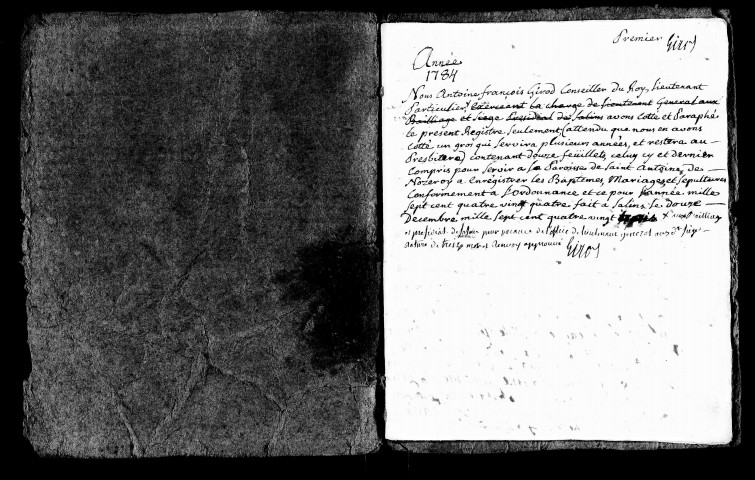 Premier Girod
Année
1784
Nous Antoine françois Girod Conseiller du Roy, Lieutenant
Particulier, exercant La charge de Lieutenant General aux
Bailliage et siege Presidial de Salins avons Cotté et Paraphé
le present Registre seulement (attendu que nous en avons
Cotté un gros qui servira plusieurs années, et restera au
Presbitere) contenant douze feüillets, celuy cy et dernier
Compris pour servir a la Paroisse de Saint Antoine de
Nozeroy a enregistrer les Baptemes Mariages et sepultures
Conformement a L'ordonnance et ce pour L'année mille
sept cent quatre vingt quatre fait a Salins le douze
Decembre mille sept cent quatre vingt trois aux Bailliage
et presidial de Salins pour vacance de l'office de lieutenant general aud. siege
rature de treize mots et renvoy approuvé Girod